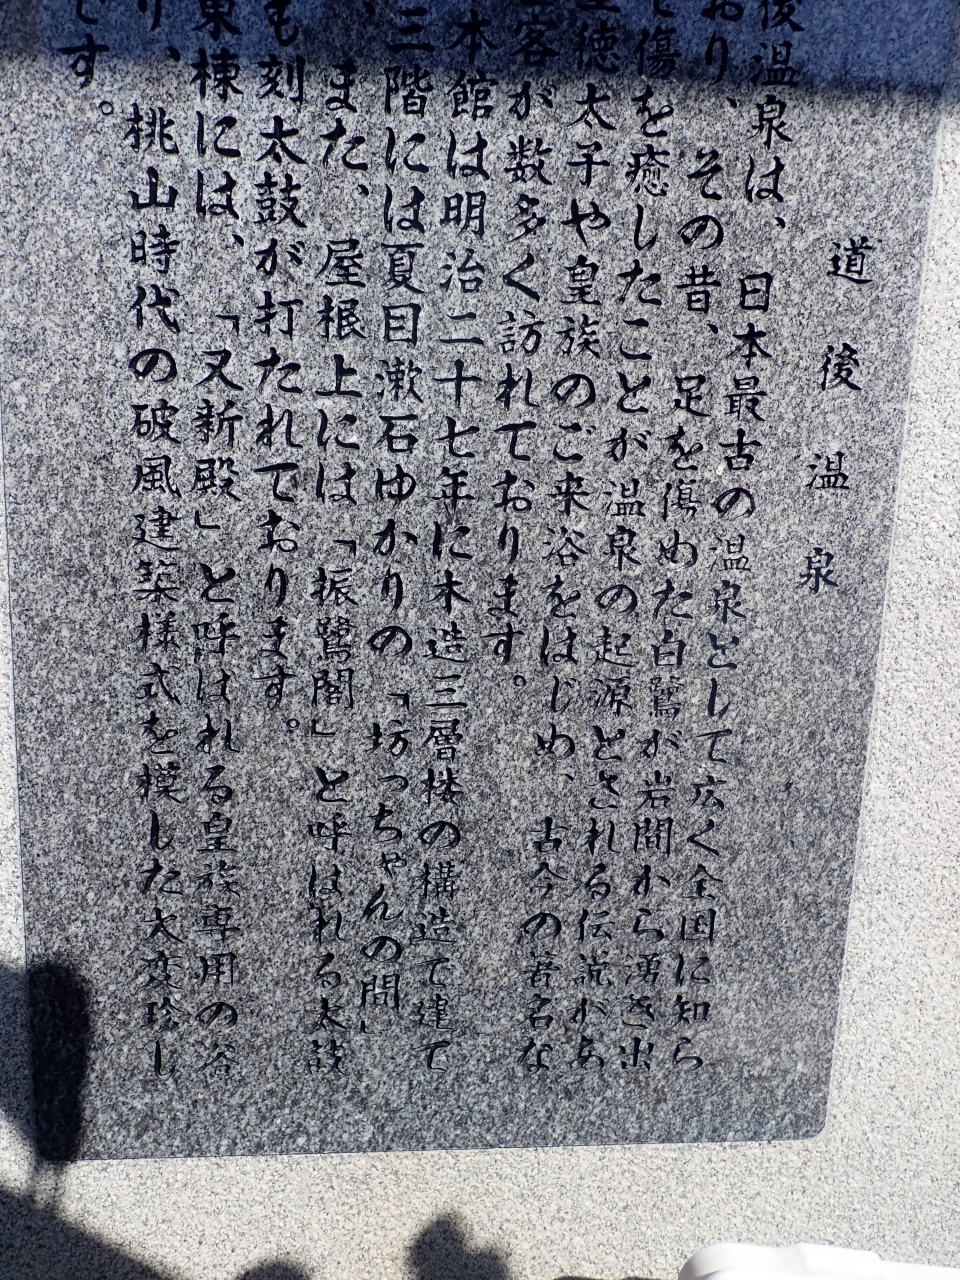 道後温泉
後温泉は、日本最古の温泉として広く全国に知ら
おり、その昔、足を傷めた白鷺が岩間から湧き出
で傷を癒したことが温泉の起源とされる伝説があ
徳太子や皇族のご来浴をはじめ、古今の著名な
客が数多く訪れております。
本館は明治二十七年に木造三層楼の構造で建て
三階には夏目漱石ゆかりの「坊っちゃんの間」
、また、屋根上には「振鷺閣」と呼ばれる太鼓
も刻太鼓が打たれております。
東棟には、「又新殿」と呼ばれる皇族専用の浴
り、桃山時代の破風建築様式を模した大変珍し
です。